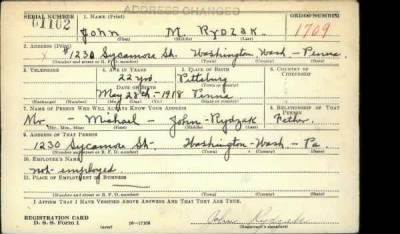 ADDRESS CHANGED
SERIAL NUMBER 1. NAME (Print) ORDER NUMBER
John M. Rydzak 1709
(First) (Middle) (Last)
2. ADDRESS (Print)
1230 Sycamore St. Washington Wash - Penna
(Number and street or R. F. D. number) (Town) (County) (State)
3. TELEPHONE 4. AGE IN YEARS 5. PLACE OF BIRTH 6. COUNTRY OF CITIZENSHIP
22 yrs. Pittsburg
DATE OF BIRTH
May 28th - 1918 Penna
7. NAME OF PERSON WHO WILL ALWAYS KNOW YOUR ADDRESS 8. RELATIONSHIP OF THAT PERSON
Mr - Michael - John - Rydzak Father
(Mr., Mrs., Miss) (First) (Middle) (Last)
9. ADDRESS OF THAT PERSON
1230 Sycamore St - Washington - Wash - Pa.
(Number and street or R. F. D. number) (Town) (County) (State)
10. EMPLOYER'S NAME
not employed
11. PLACE OF EMPLOYMENT OR BUSINESS
(Number and street or R. F. D. number) (Town) (County) (State)
I AFFIRM THAT I HAVE VERIFIED ABOVE ANSWERS AND THAT THEY ARE TRUE.
REGISTRATION CARD
D. S. S. Form 1 (over) (Registrant's signature)